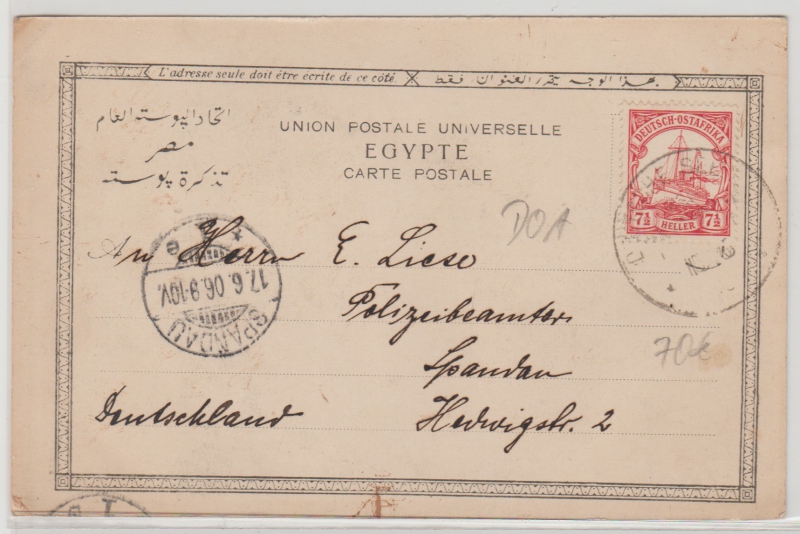 L'adresse seule doit être écrite de ce côté
بهذا الوجه يحرر العنوان فقط
اتحاد البوسته العام
مصر
تذكرة بوسته
UNION POSTALE UNIVERSELLE
EGYPTE
CARTE POSTALE
DEUTSCH-OSTAFRIKA
7½ HELLER 7½
DOA
An Herrn E. Liese
Polizeibeamter
Spandau
Hedwigstr. 2
Deutschland
17.6.06.9-10V.
SPANDAU
70€